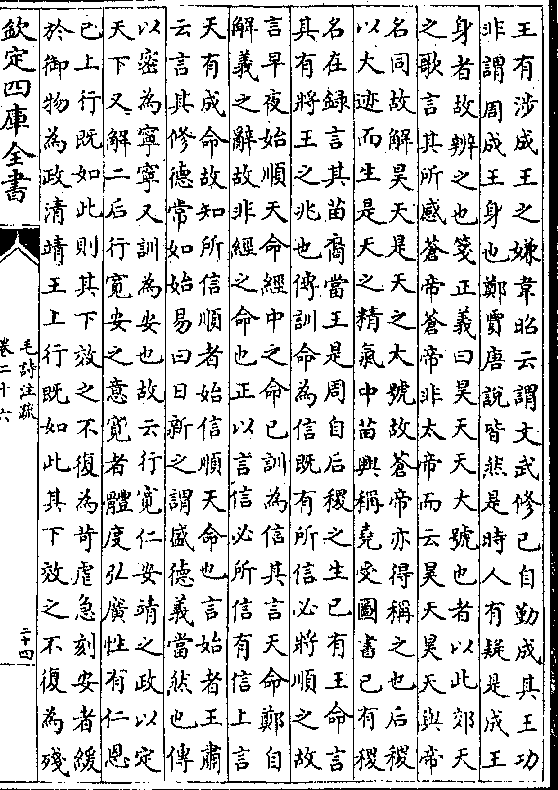 王有涉成王之嫌韋昭云謂文武修已自勤成其王功
非謂周成王身也鄭賈唐說皆然是時人有疑是成王
身者故辨之也箋正義曰昊天天大號也者以此郊天
之歌言其所感蒼帝蒼帝非太帝而云昊天昊天與帝
名同故解昊天是天之大號故蒼帝亦得稱之也后稷
以大迹而生是天之精氣中苗興稱堯受圖書已有稷
名在録言其苗裔當王是周自后稷之生已有王命言
其有將王之兆也傳訓命為信既有所信必將順之故
言早夜始順天命經中之命已訓為信其言天命鄭自
解義之辭故非經之命也正以言信必所信有信上言
天有成命故知所信順者始信順天命也言始者王肅
云言其修德常如始易曰日新之謂盛德義當然也傳
以密為寧寧又訓為安也故云行寛仁安靖之政以定
天下又解二后行寛安之意寛者體度弘廣性有仁恩
已上行既如此則其下效之不復為苛虐急刻安者緩
於御物為政清靖王上行既如此其下效之不復為殘
欽定四庫全書
毛詩注疏
卷二十六
二十四